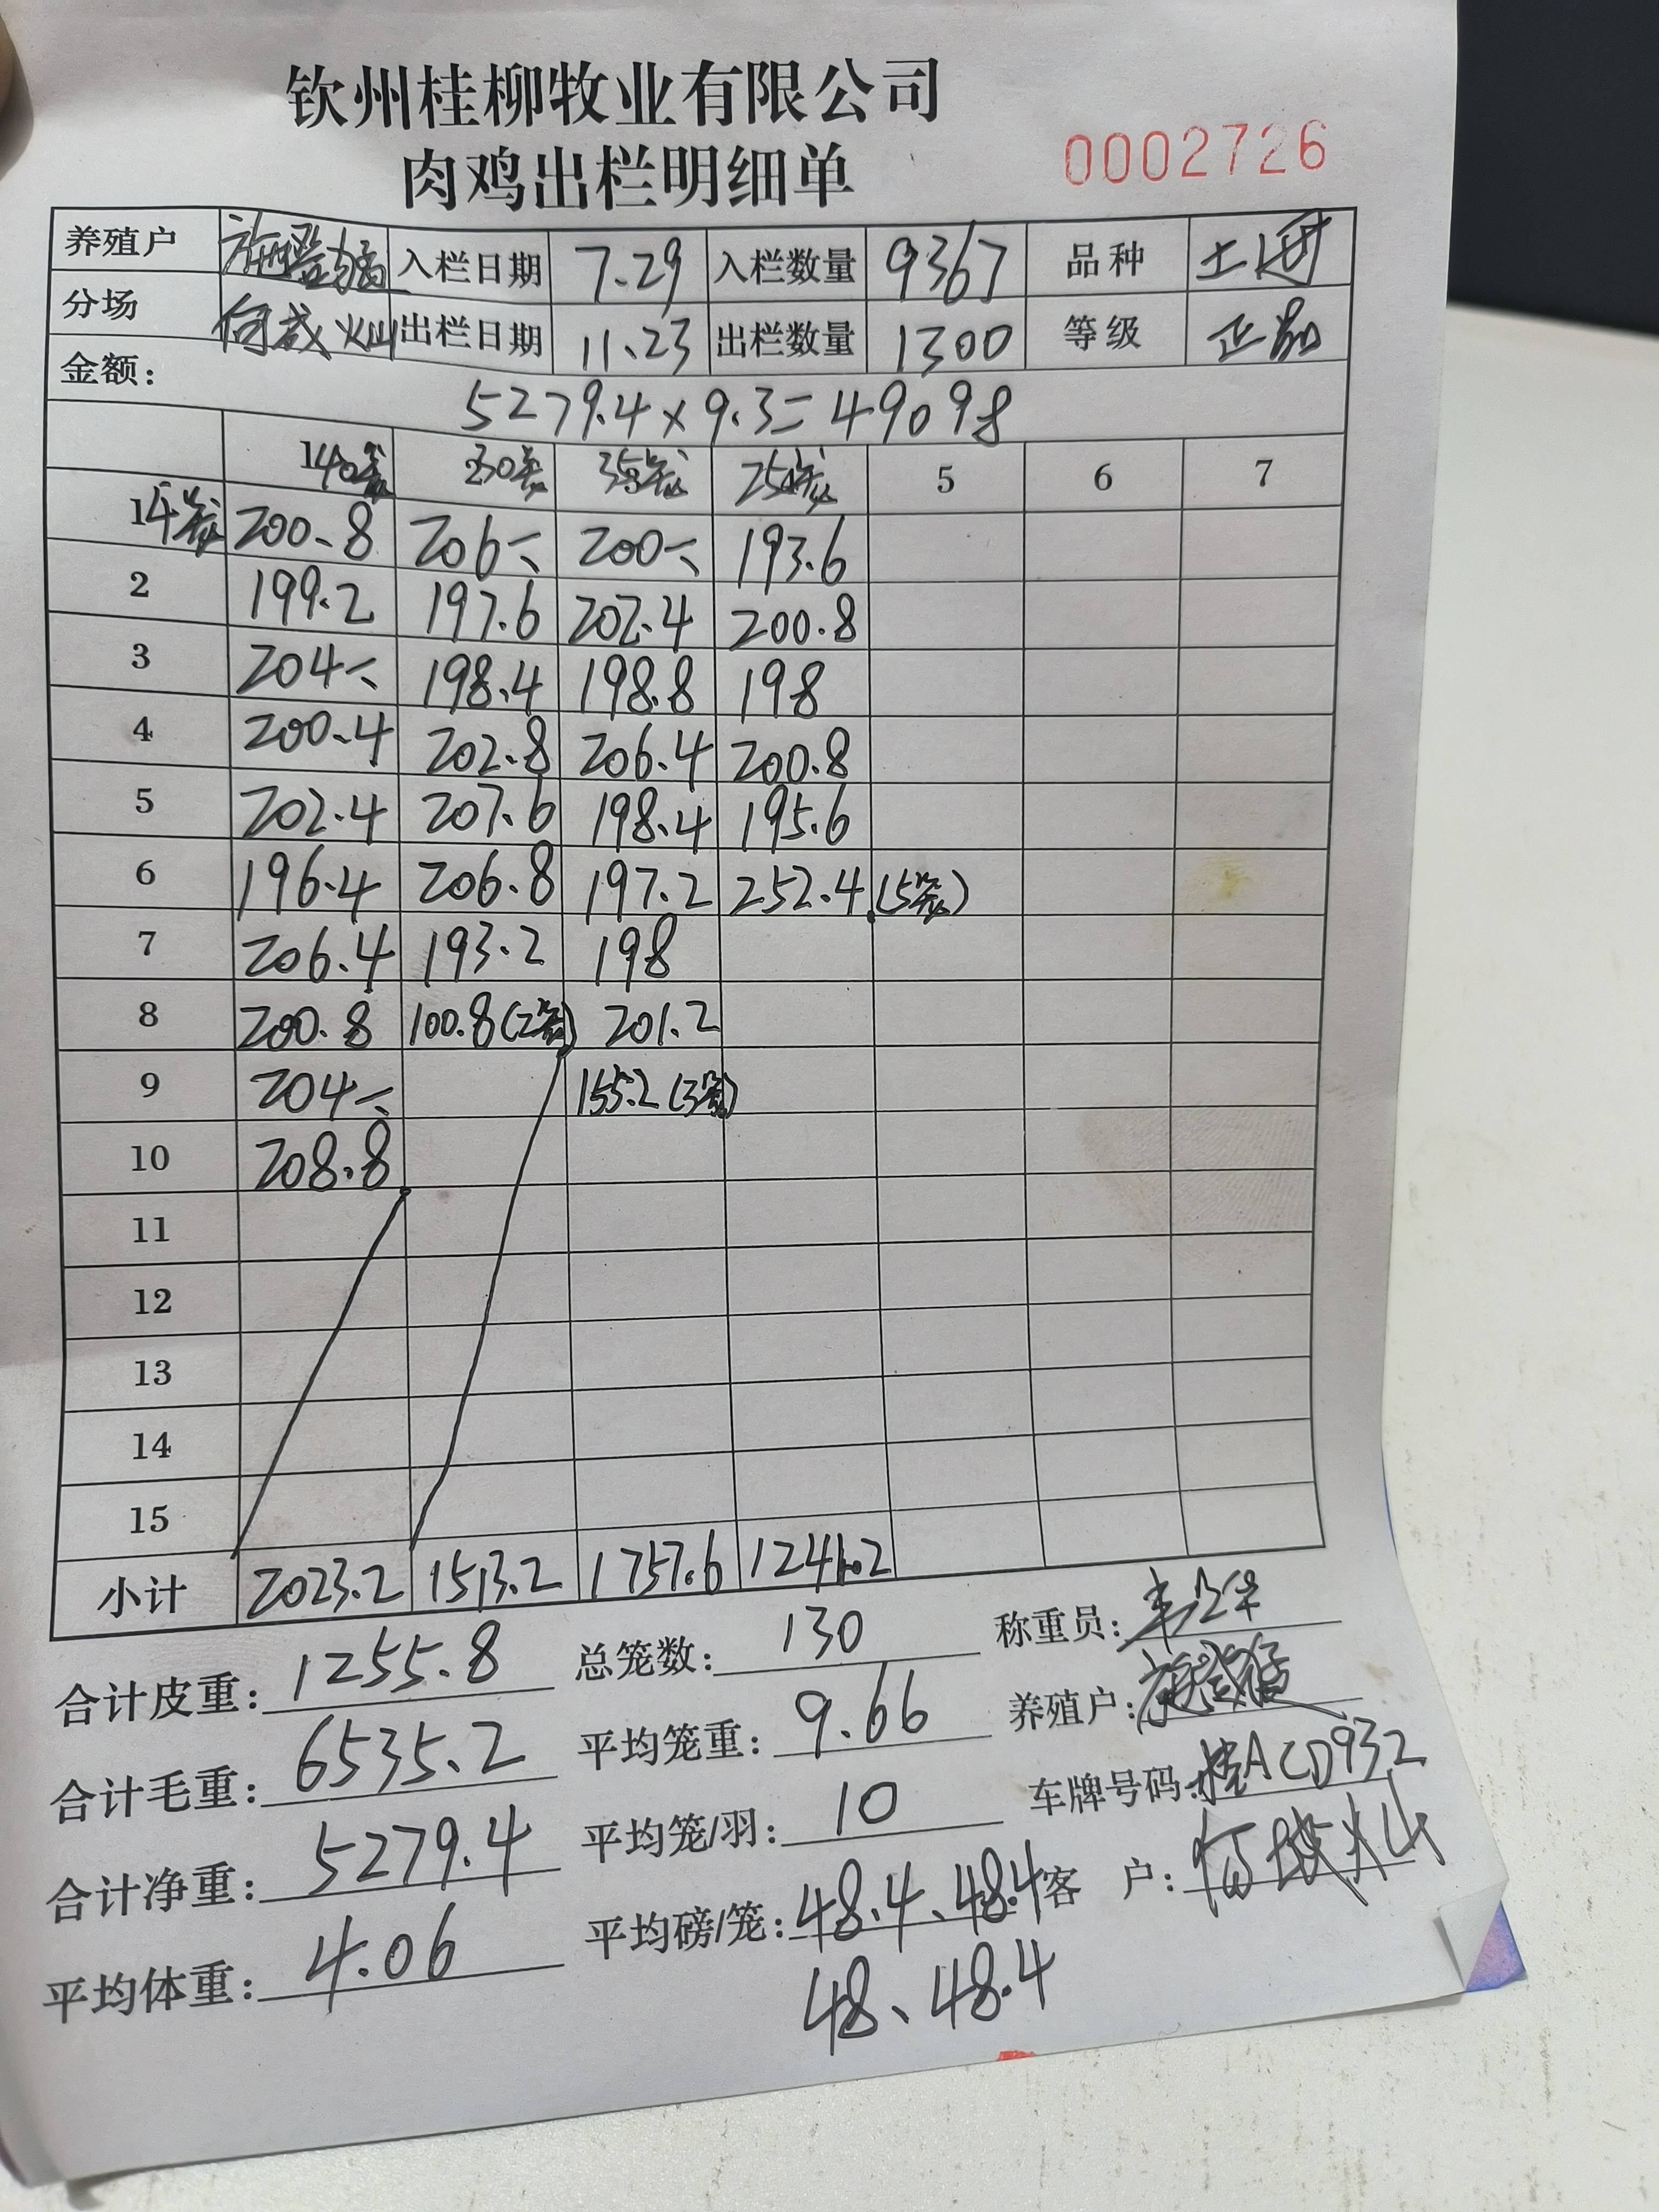 钦州桂柳牧业有限公司
肉鸡出栏明细单 0002726
养殖户 入栏日期 7.29 入栏数量 9367 品种
分场 出栏日期 11.23 出栏数量 1300 等级 正品
金额: 5279.4×9.3=49098
140笼 230笼 35笼 25笼 5 6 7
1 4笼 200.8 206 200 193.6
2 199.2 197.6 202.4 200.8
3 204 198.4 198.8 198
4 200.4 202.8 206.4 200.8
5 202.4 207.6 198.4 195.6
6 196.4 206.8 197.2 252.4 (5笼)
7 206.4 193.2 198
8 200.8 100.8(2笼) 201.2
9 204 155.2(3笼)
10 208.8
11
12
13
14
15
小计 2023.2 1513.2 1757.6 1241.2
合计皮重: 1255.8 总笼数: 130 称重员:
合计毛重: 6535.2 平均笼重: 9.66 养殖户:
合计净重: 5279.4 平均笼/羽: 10 车牌号码: 桂ACD932
平均体重: 4.06 平均磅/笼: 48.4、48.4 客 户:
48、48.4